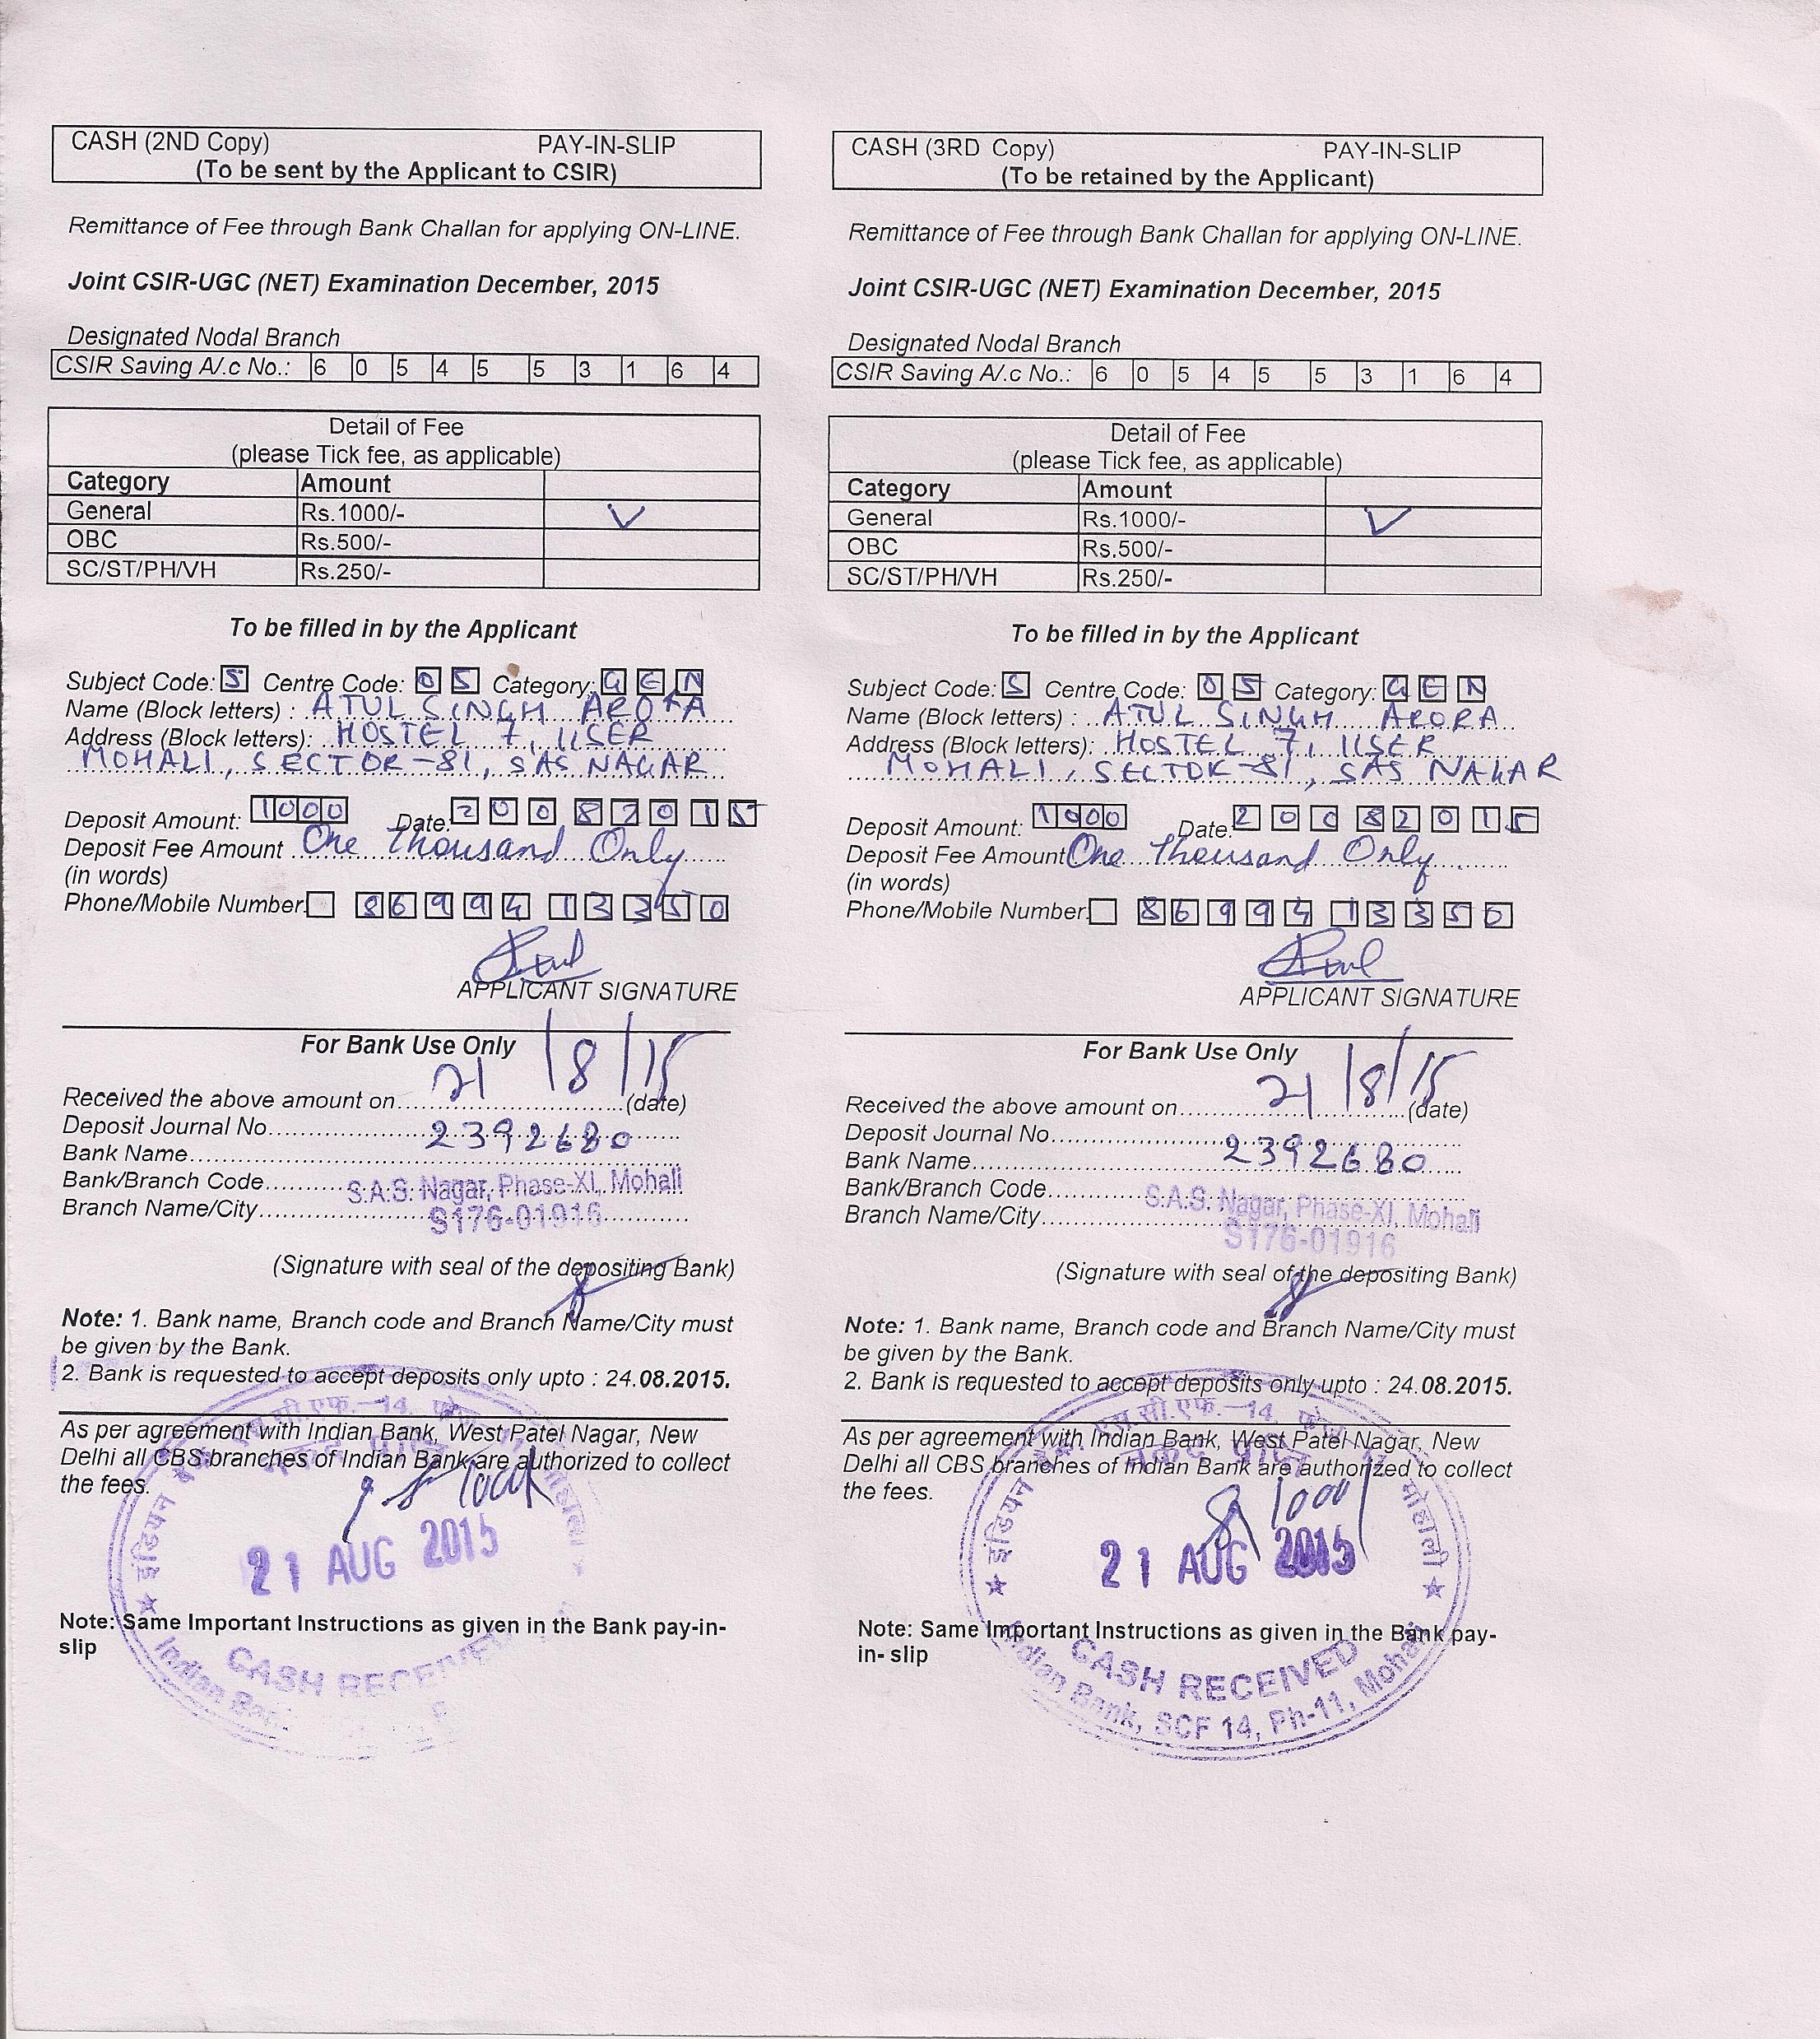 CASH (2ND Copy) PAY-IN-SLIP
(To be sent by the Applicant to CSIR)
Remittance of Fee through Bank Challan for applying ON-LINE.
Joint CSIR-UGC (NET) Examination December, 2015
Designated Nodal Branch
CSIR Saving A/.c No.: 6 0 5 4 5 5 3 1 6 4
Detail of Fee
(please Tick fee, as applicable)
Category Amount
General Rs.1000/- ✓
OBC Rs.500/-
SC/ST/PH/VH Rs.250/-
To be filled in by the Applicant
Subject Code: 5 Centre Code: 0 5 Category: G E N
Name (Block letters) : ATUL SINGH ARORA
Address (Block letters): HOSTEL 7, IISER
MOHALI, SECTOR-81, SAS NAGAR
Deposit Amount: 1000 Date: 20082015
Deposit Fee Amount One Thousand Only
(in words)
Phone/Mobile Number 8699413350
APPLICANT SIGNATURE
For Bank Use Only
Received the above amount on 21/8/15 (date)
Deposit Journal No. 2392680
Bank Name
Bank/Branch Code S.A.S. Nagar, Phase-XI, Mohali
Branch Name/City S176-01916
(Signature with seal of the depositing Bank)
Note: 1. Bank name, Branch code and Branch Name/City must
be given by the Bank.
2. Bank is requested to accept deposits only upto : 24.08.2015.
As per agreement with Indian Bank, West Patel Nagar, New
Delhi all CBS branches of Indian Bank are authorized to collect
the fees.
इंडियन
21 AUG 2015
Note: Same Important Instructions as given in the Bank pay-in-
slip
CASH RECEIVED
Indian
CASH (3RD Copy) PAY-IN-SLIP
(To be retained by the Applicant)
Remittance of Fee through Bank Challan for applying ON-LINE.
Joint CSIR-UGC (NET) Examination December, 2015
Designated Nodal Branch
CSIR Saving A/.c No.: 6 0 5 4 5 5 3 1 6 4
Detail of Fee
(please Tick fee, as applicable)
Category Amount
General Rs.1000/- ✓
OBC Rs.500/-
SC/ST/PH/VH Rs.250/-
To be filled in by the Applicant
Subject Code: 5 Centre Code: 0 5 Category: G E N
Name (Block letters) : ATUL SINGH ARORA
Address (Block letters): HOSTEL 7, IISER
MOHALI, SECTOR-81, SAS NAGAR
Deposit Amount: 1000 Date: 20082015
Deposit Fee Amount One Thousand Only
(in words)
Phone/Mobile Number 8699413350
APPLICANT SIGNATURE
For Bank Use Only
Received the above amount on 21/8/15 (date)
Deposit Journal No.
Bank Name 2392680
Bank/Branch Code S.A.S. Nagar, Phase-XI, Mohali
Branch Name/City S176-01916
(Signature with seal of the depositing Bank)
Note: 1. Bank name, Branch code and Branch Name/City must
be given by the Bank.
2. Bank is requested to accept deposits only upto : 24.08.2015.
As per agreement with Indian Bank, West Patel Nagar, New
Delhi all CBS branches of Indian Bank are authorized to collect
the fees.
1000
इंडियन बैंक, एस.सी.एफ.-14, मोहाली
नकद प्राप्ति
21 AUG 2015
Note: Same Important Instructions as given in the Bank pay-
in- slip
CASH RECEIVED
Indian Bank, SCF 14, Ph-11, Mohali